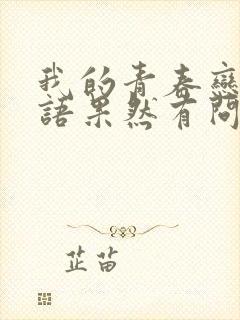 我的青春戀
語果然有問
芷苗